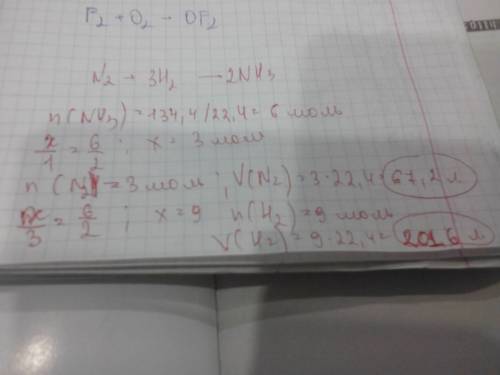 F₂ + O₂ → OF₂
N₂ + 3H₂ → 2NH₃
n(NH₃) = 134,4/22,4 = 6 моль
x/1 = 6/2 ; x = 3 мом
n(N₂) = 3 моль ; V(N₂) = 3·22,4 = 67,2 л.
x/3 = 6/2 ; x = 9 n(H₂) = 9 моль
V(H₂) = 9·22,4 = 201,6 л.